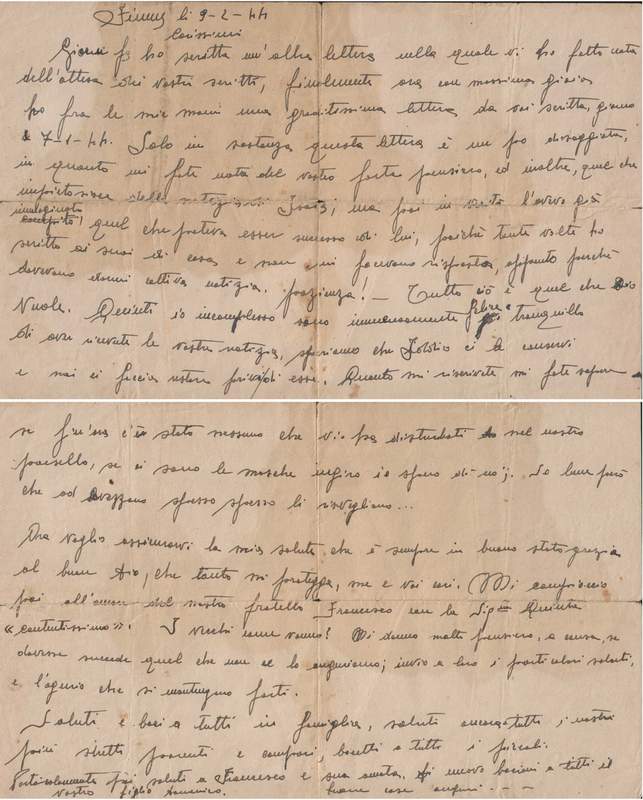 Fiume li 9-2-44
Carissimi
Giorni fa ho scritto un'altra lettera nella quale vi ho fatto nota
dell'attesa dei vostri scritti, finalmente ora con massima gioia
ho fra le mie mani una graditissima lettera da voi scritta, giorno
7-1-44. Solo in sostanza questa lettera è un po
in quanto mi fate nota del vostro forte pensiero, ed inoltre, quel che
delle ma poi in verità l'avevo già
immaginato quel che poteva esser successo di lui, poichè tante volte ho
scritto ai suoi di casa e non mi facevano risposta, appunto perché
dovevano darmi cattiva notizia. pazienza! — Tutto ciò è quel che Dio
Vuole. io incomplesso sono immensamente felice e tranquillo
di aver ricevute le vostre notizie, speriamo che Iddio ci li conservi
e mai ci faccia restare privi di essi. Quanto mi riscrivete mi fate sapere
se fin'ora c'è stato nessuno che vi ha disturbati nel nostro
paesello, se ci sono le mosche ingiro io spero di no; So bene però
che ad spesso spesso li risvegliano...
Ora voglio assicurarvi la mia salute che è sempre in buono stato grazia
al buon Dio, che tanto mi protegga, me e voi cari. Mi compiaccio
poi all'amore del nostro fratello Francesco con la Sig= Quinta
"contentissimo". I vecchi come vanno? Mi danno molto pensiero, a causa, se
dovesse succede quel che non ce lo auguriamo; invio a loro i particolari saluti,
e l'agurio che si mantengono forti.
Saluti e baci a tutti in famiglia, saluti ancora tutti i nostri
più stretti parenti e compari, bacetti a tutti i piccoli.
saluti a Francesco e sua amata. Di nuovo bacioni a tutti
vostro figlio Domenico. buone cose auguri - - -